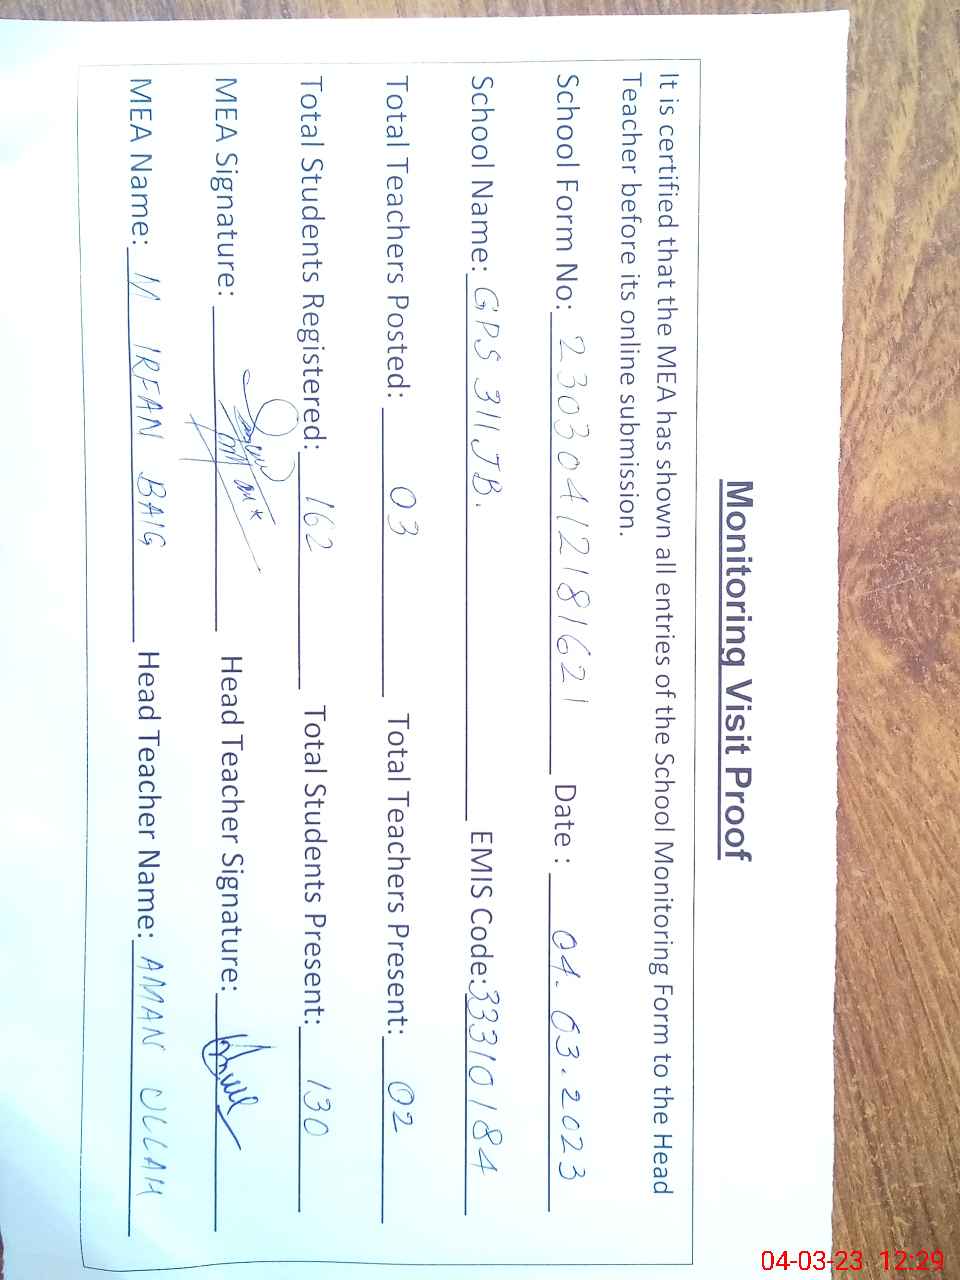 Monitoring Visit Proof
It is certified that the MEA has shown all entries of the School Monitoring Form to the Head
Teacher before its online submission.
School Form No: 230304121816 21 Date : 04.03.2023
School Name: GPS 311 JB. EMIS Code: 33310184
Total Teachers Posted: 03 Total Teachers Present: 02
Total Students Registered: 162 Total Students Present: 130
MEA Signature: Head Teacher Signature:
MEA Name: M IRFAN BAIG Head Teacher Name: AMAN ULLAH
04-03-23 12:29